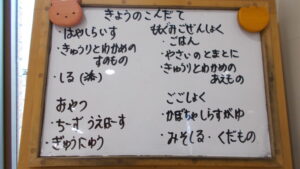 きょうのこんだて
・はやしらいす
・きゅうりとわかめの
すのもの
・しる(添)
おやつ
・ちーずうえはーす
・ぎゅうにゅう
ももぐみごぜんしょく
ごはん
・やさいのとまとに
・きゅうりとわかめの
あえもの
ごごしょく
・かぼちゃしらすがゆ
・みそしる・くだもの